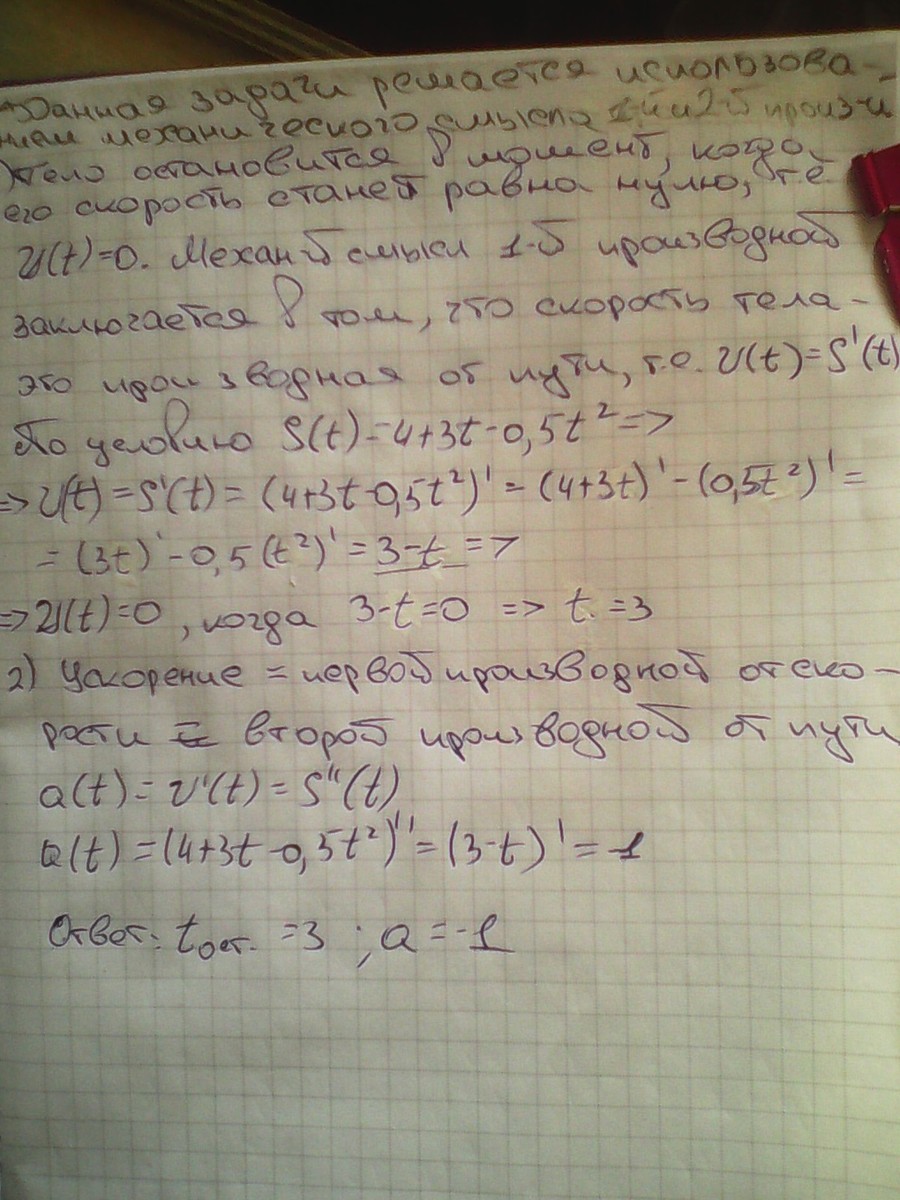 Данная задачи решается использова-
нием механического смысла 1-й и 2-й произ-и
1) тело остановится в момент, когда
его скорость станет равна нулю, т.е
V(t)=0. Механ-й смысл 1-й производной
заключается в том, что скорость тела-
это производная от пути, т.е. V(t)=S'(t)
По условию S(t)=4+3t-0,5t²=>
=>V(t)=S'(t)=(4+3t-0,5t²)'=(4+3t)'-(0,5t²)'=
=(3t)'-0,5(t²)'=3-t=>
=>V(t)=0, когда 3-t=0 => t=3
2) Ускорение = первой производной от ско-
рости = второй производной от пути
a(t)=V'(t)=S''(t)
a(t)=(4+3t-0,5t²)''=(3-t)'=-1
Ответ: tост.=3; a=-1